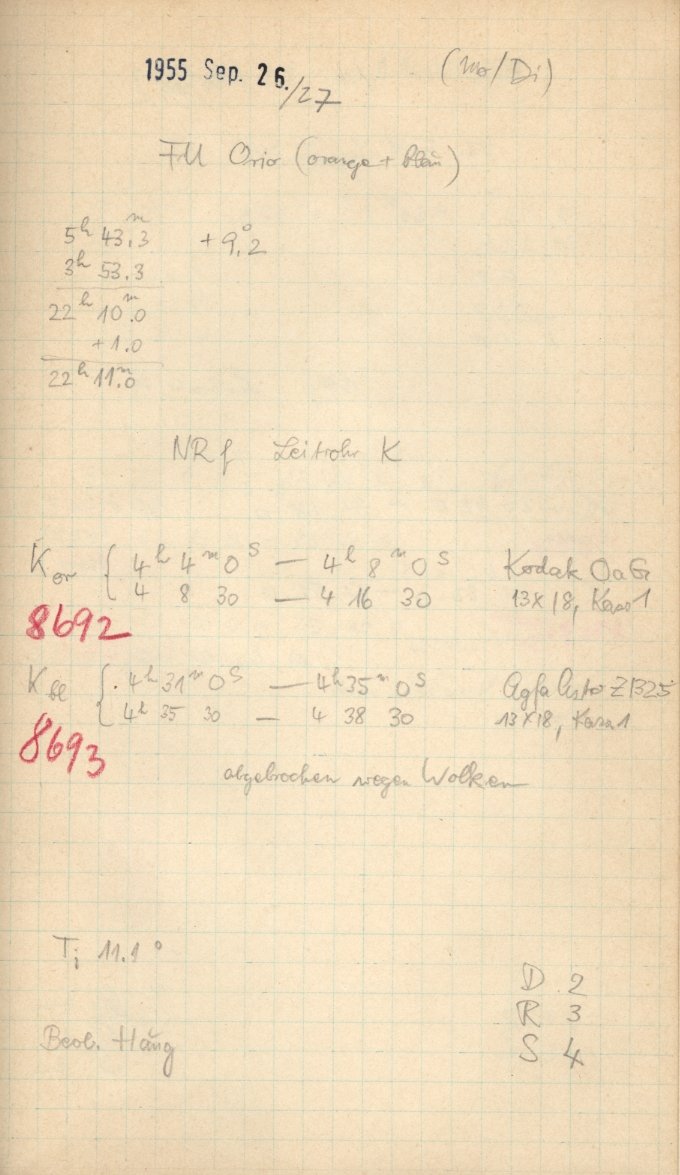 1955 Sep. 26./27 (Mo/Di)
FU Orio (orange + Blau)
5h 43.3m +9.°2
3h 53.3
22h 10.0m
+1.0
22h 11.0m
NRf Leitrohr K
Kor { 4h 4m 0s — 4h 8m 0s Kodak OaG
4 8 30 — 4 16 30 13x18, Kass 1
8692
Kbl { 4h 31m 0s — 4h 35m 0s Agfa Astro Z 1325
4h 35 30 — 4 38 30 13x18, Kass 1
8693
abgebrochen wegen Wolken
Ti 11.1°
D 2
R 3
Beob. Haug
S 4